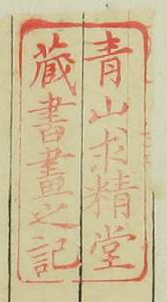 青山求精堂
藏書畫之記